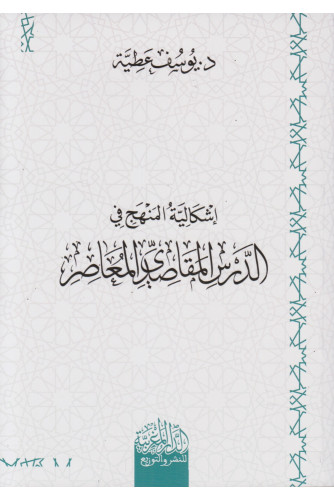 د. يُوسُف عَطِيَّة
إشكاليَّةُ المَنهَجِ في
الدَّرْسِ المَقَاصِدِيِّ المُعَاصِرِ
الدار المغربية
للنشر والتوزيع